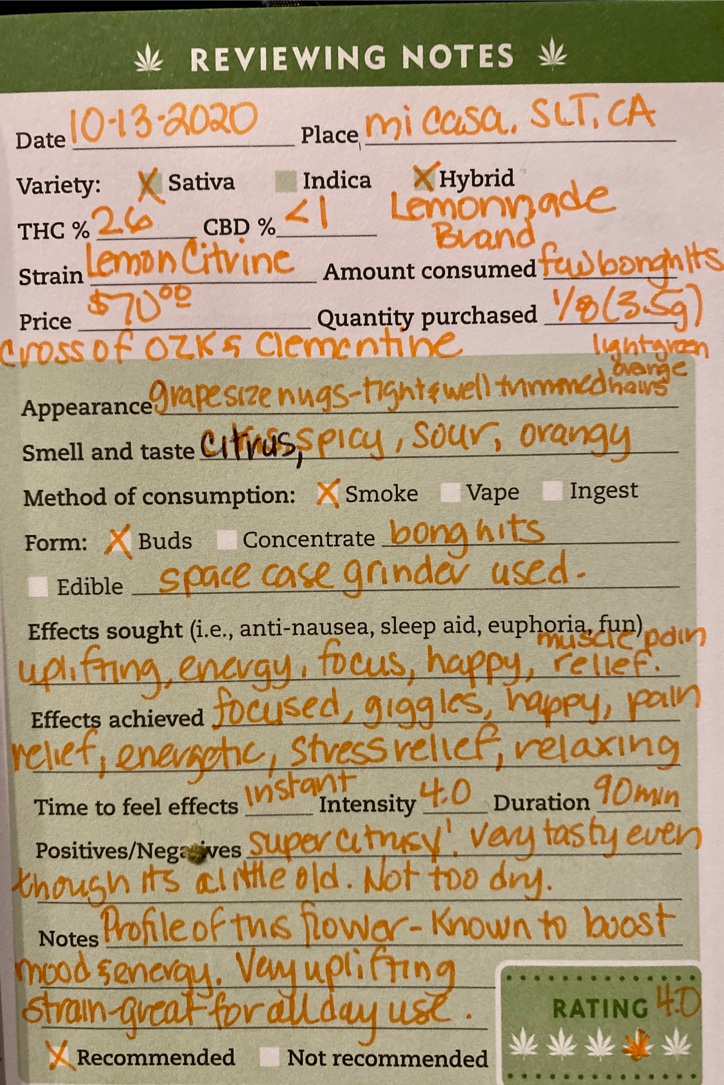 REVIEWING NOTES
Date 10-13-2020 Place mi casa, SLT, CA
Variety: X Sativa Indica X Hybrid
THC % 26 CBD % <1 Lemonnade
Brand
Strain Lemon Citrine Amount consumed few bong hits
Price $70.00 Quantity purchased 1/8 (3.5g)
Cross of OZK & Clementine light green
orange
Appearance grape size nugs-tight & well trimmed hairs
Smell and taste citrus, spicy, sour, orangy
Method of consumption: X Smoke Vape Ingest
Form: X Buds Concentrate bong hits
Edible space case grinder used.
Effects sought (i.e., anti-nausea, sleep aid, euphoria, fun)
muscle pain
uplifting, energy, focus, happy, relief.
Effects achieved focused, giggles, happy, pain
relief, energetic, stress relief, relaxing
Time to feel effects instant Intensity 4.0 Duration 90min
Positives/Negatives super citrusy! Very tasty even
though its a little old. Not too dry.
Notes Profile of this flower - Known to boost
mood & energy. Very uplifting
strain-great for all day use.
RATING 4.0
X Recommended Not recommended